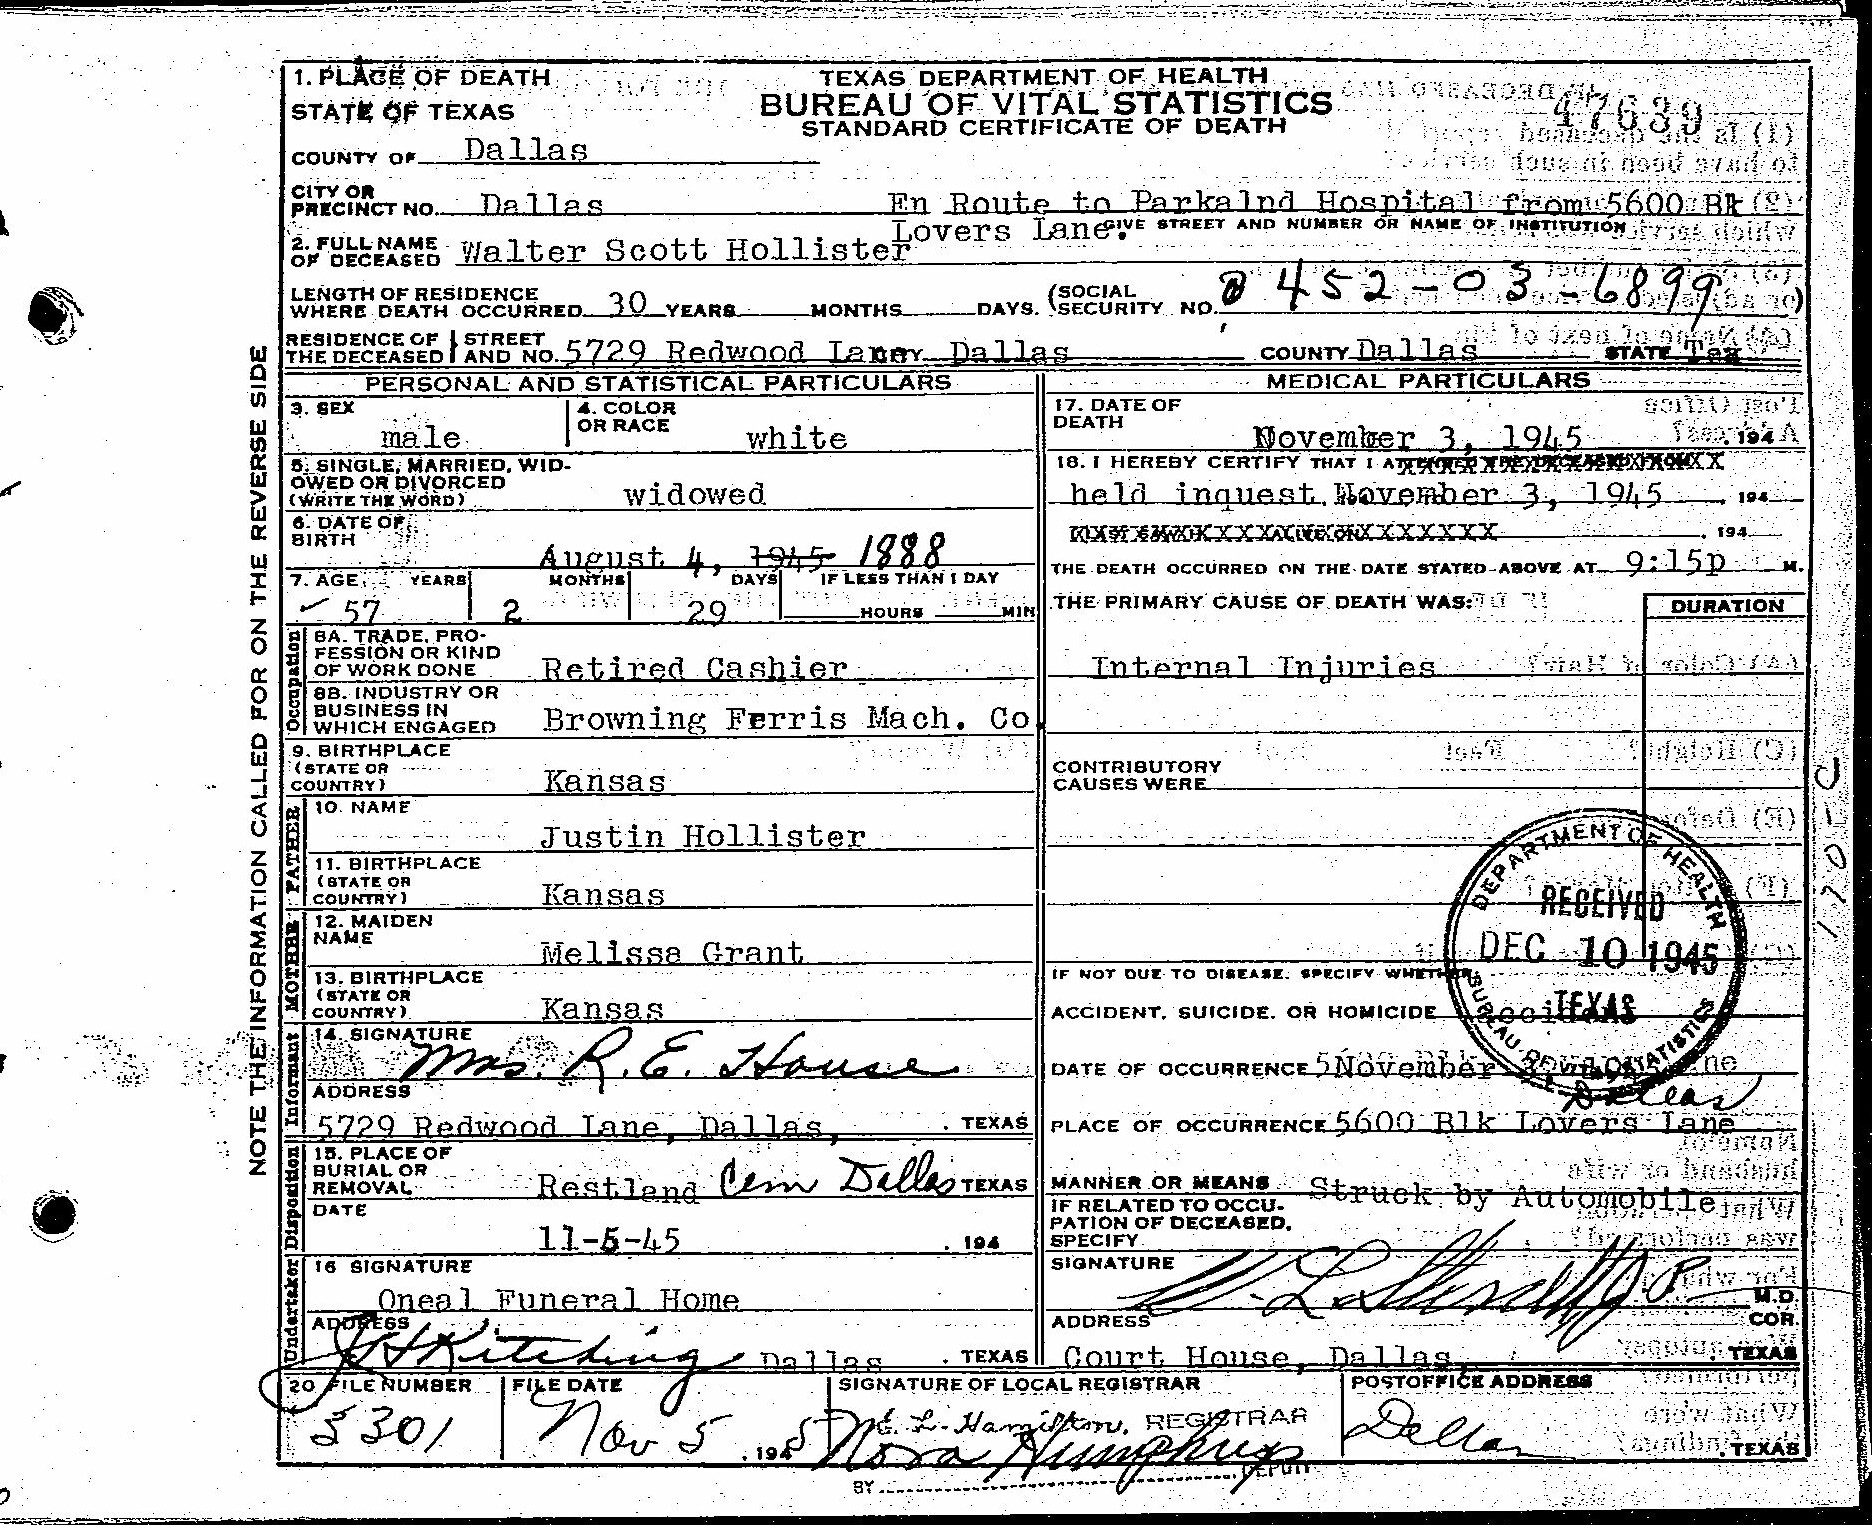 1. PLACE OF DEATH
STATE OF TEXAS
TEXAS DEPARTMENT OF HEALTH
BUREAU OF VITAL STATISTICS
STANDARD CERTIFICATE OF DEATH
47639
COUNTY OF Dallas
CITY OR
PRECINCT NO. Dallas En Route to Parkalnd Hospital from 5600 Bk
Lovers Lane. GIVE STREET AND NUMBER OR NAME OF INSTITUTION
2. FULL NAME
OF DECEASED Walter Scott Hollister
LENGTH OF RESIDENCE
WHERE DEATH OCCURRED 30 YEARS MONTHS DAYS. (SOCIAL SECURITY NO. 452-03-6899)
RESIDENCE OF THE DECEASED STREET AND NO. 5729 Redwood Lane Dallas COUNTY Dallas STATE Tex
NOTE THE INFORMATION CALLED FOR ON THE REVERSE SIDE
PERSONAL AND STATISTICAL PARTICULARS
3. SEX
male
4. COLOR
OR RACE
white
5. SINGLE, MARRIED, WID-
OWED OR DIVORCED
(WRITE THE WORD) widowed
6. DATE OF
BIRTH
August 4, 1945 1888
7. AGE YEARS MONTHS DAYS IF LESS THAN 1 DAY
57 2 29 HOURS MIN
Occupation
8A. TRADE, PRO-
FESSION OR KIND
OF WORK DONE Retired Cashier
8B. INDUSTRY OR
BUSINESS IN
WHICH ENGAGED Browning Ferris Mach. Co.
9. BIRTHPLACE
(STATE OR
COUNTRY) Kansas
FATHER
10. NAME
Justin Hollister
11. BIRTHPLACE
(STATE OR
COUNTRY) Kansas
MOTHER
12. MAIDEN
NAME
Melissa Grant
13. BIRTHPLACE
(STATE OR
COUNTRY) Kansas
Informant
14. SIGNATURE
Mrs. R. E. House
ADDRESS
5729 Redwood Lane, Dallas, . TEXAS
Disposition
15. PLACE OF
BURIAL OR
REMOVAL Restland Cem Dallas TEXAS
DATE
11-5-45 . 194
Undertaker
16 SIGNATURE
Oneal Funeral Home
ADDRESS
Kitching Dallas . TEXAS
MEDICAL PARTICULARS
17. DATE OF
DEATH
November 3, 1945 . 194
18. I HEREBY CERTIFY THAT I
held inquest November 3, 1945 . 194
. 194
THE DEATH OCCURRED ON THE DATE STATED ABOVE AT 9:15p M.
THE PRIMARY CAUSE OF DEATH WAS:
DURATION
Internal Injuries
CONTRIBUTORY
CAUSES WERE
DEPARTMENT OF HEALTH
RECEIVED
DEC 10 1945
TEXAS
BUREAU OF VITAL STATISTICS
IF NOT DUE TO DISEASE, SPECIFY WHETHER:
ACCIDENT, SUICIDE, OR HOMICIDE accident
DATE OF OCCURRENCE November 3,
Dallas
PLACE OF OCCURRENCE 5600 Blk Lovers Lane
MANNER OR MEANS Struck by Automobile
IF RELATED TO OCCU-
PATION OF DECEASED,
SPECIFY
SIGNATURE
J.P.
M.D.
COR.
ADDRESS
Court House, Dallas, . TEXAS
20 FILE NUMBER
3301
FILE DATE
Nov 5 . 1945
SIGNATURE OF LOCAL REGISTRAR
E. L. Hamilton, REGISTRAR
Nora Humphreys
BY DEPUTY
POSTOFFICE ADDRESS
Dallas . TEXAS